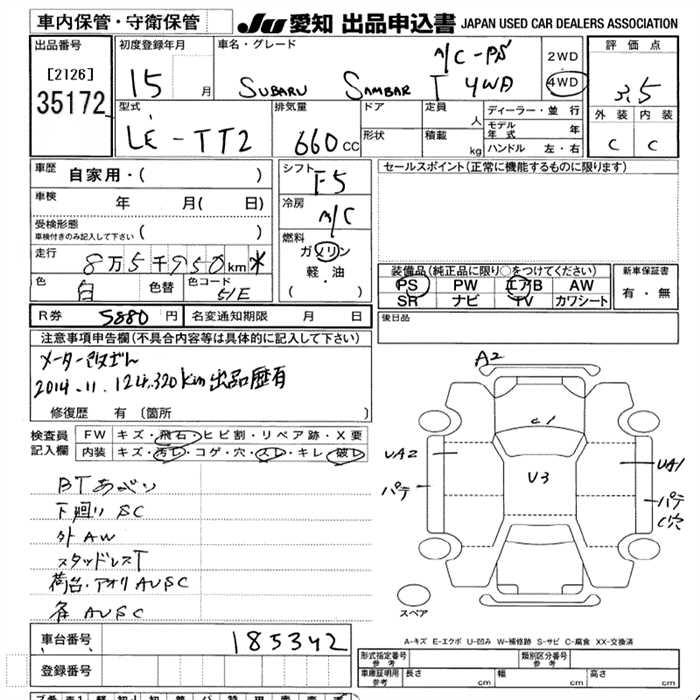 車内保管・守衛保管
JU 愛知 出品申込書 JAPAN USED CAR DEALERS ASSOCIATION
出品番号
[2126]
35172
初度登録年月
15 月
車名・グレード
SUBARU SAMBAR T 4WD
A/C-PS
2WD
4WD
評価点
3.5
外装 内装
C C
型式
LE-TT2
排気量
660 CC
ドア
形状
定員
人
積載
kg
ディーラー・並行
モデル年式 年
ハンドル 左・右
車歴
自家用・( )
車検
年 月( 日)
受検形態
車検付きのみ記入して下さい ( )
走行
8万5千950km *
色
白
色替
色コード
51E
シフト
F5
冷房
A/C
燃料
ガソリン
軽・油
( )
セールスポイント(正常に機能するものに限ります)
装備品(純正品に限り○をつけてください)
PS PW エアB AW
SR ナビ TV カワシート
新車保証書
有・無
R券 5880 円
名変通知期限 月 日
後日品
注意事項申告欄(不具合等は具体的に記入して下さい)
メーター改ざん
2014.11. 124,320km出品歴有
修復歴 有 〔箇所 〕
検査員
記入欄
FW キズ・飛石・ヒビ割・リペア跡・X要
内装 キズ・汚レ・コゲ・穴・スレ・キレ・破レ
下廻り SC
外 AW
スタッドレスT
荷台・アオリ AUSC
各 AUSC
A2
C1
UA2
パテ
U3
UA1
パテ
C穴
スペア
A-キズ E-エクボ U-凹み W-補修跡 S-サビ C-腐食 XX-交換済
車台番号
185342
登録番号
形式指定番号
参考
類別区分番号
参考
車庫証明用
参考
長さ cm
幅 cm
高さ cm